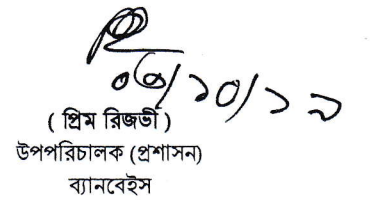 ০৩/১০/১৯
( প্রিম রিজভী )
উপপরিচালক (প্রশাসন)
ব্যানবেইস